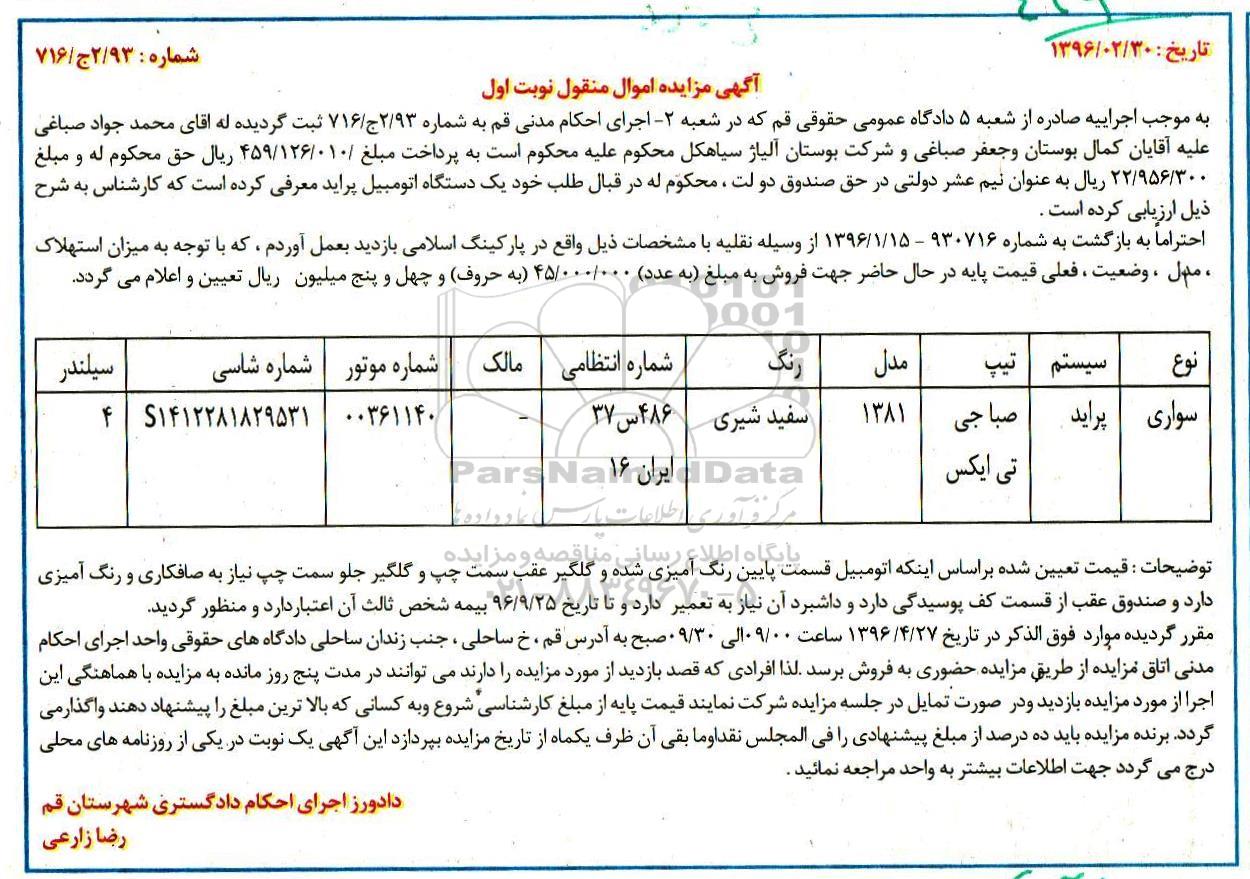 تاریخ : ۱۳۹۶/۰۲/۳۰
شماره : ۲/۹۳ج/۷۱۶
آگهی مزایده اموال منقول نوبت اول
به موجب اجراییه صادره از شعبه ۵ دادگاه عمومی حقوقی قم که در شعبه ۲- اجرای احکام مدنی قم به شماره ۲/۹۳ج/۷۱۶ ثبت گردیده له اقای محمد جواد صباغی
علیه آقایان کمال بوستان وجعفر صباغی و شرکت بوستان آلیاژ سیاهکل محکوم علیه محکوم است به پرداخت مبلغ /۴۵۹/۱۲۶/۰۱۰ ریال حق محکوم له و مبلغ
۲۲/۹۵۶/۳۰۰ ریال به عنوان نیم عشر دولتی در حق صندوق دو لت ، محکوم له در قبال طلب خود یک دستگاه اتومبیل پراید معرفی کرده است که کارشناس به شرح
ذیل ارزیابی کرده است .
احتراماً به بازگشت به شماره ۹۳۰۷۱۶ - ۱۳۹۶/۱/۱۵ از وسیله نقلیه با مشخصات ذیل واقع در پارکینگ اسلامی بازدید بعمل آوردم ، که با توجه به میزان استهلاک
، مدل ، وضعیت ، فعلی قیمت پایه در حال حاضر جهت فروش به مبلغ (به عدد) ۴۵/۰۰۰/۰۰۰ (به حروف) و چهل و پنج میلیون ریال تعیین و اعلام می گردد.
نوع سیستم تیپ مدل رنگ شماره انتظامی مالک شماره موتور شماره شاسی سیلندر
سواری پراید صبا جی ۱۳۸۱ سفید شیری ۴۸۶س۳۷ - ۰۰۳۶۱۱۴۰ S۱۴۱۲۲۸۱۸۲۹۵۳۱ ۴
تی ایکس ایران ۱۶
ParsNamadData
مرکز فرآوری اطلاعات پارس نماد داده ها
پایگاه اطلاع رسانی مناقصه و مزایده
۰۲۱-۸۸۳۴۹۶۷۰-۵
توضیحات : قیمت تعیین شده براساس اینکه اتومبیل قسمت پایین رنگ آمیزی شده و گلگیر عقب سمت چپ و گلگیر جلو سمت چپ نیاز به صافکاری و رنگ آمیزی
دارد و صندوق عقب از قسمت کف پوسیدگی دارد و داشبرد آن نیاز به تعمیر دارد و تا تاریخ ۹۶/۹/۲۵ بیمه شخص ثالث آن اعتباردارد و منظور گردید.
مقرر گردیده موارد فوق الذکر در تاریخ ۱۳۹۶/۴/۲۷ ساعت ۰۹/۰۰الی ۰۹/۳۰صبح به آدرس قم ، خ ساحلی ، جنب زندان ساحلی دادگاه های حقوقی واحد اجرای احکام
مدنی اتاق مزایده از طریق مزایده حضوری به فروش برسد .لذا افرادی که قصد بازدید از مورد مزایده را دارند می توانند در مدت پنج روز مانده به مزایده با هماهنگی این
اجرا از مورد مزایده بازدید ودر صورت تمایل در جلسه مزایده شرکت نمایند قیمت پایه از مبلغ کارشناسی شروع وبه کسانی که بالا ترین مبلغ را پیشنهاد دهند واگذارمی
گردد. برنده مزایده باید ده درصد از مبلغ پیشنهادی را فی المجلس نقداوما بقی آن ظرف یکماه از تاریخ مزایده بپردازد این آگهی یک نوبت در یکی از روزنامه های محلی
درج می گردد جهت اطلاعات بیشتر به واحد مراجعه نمائید .
دادورز اجرای احکام دادگستری شهرستان قم
رضا زارعی